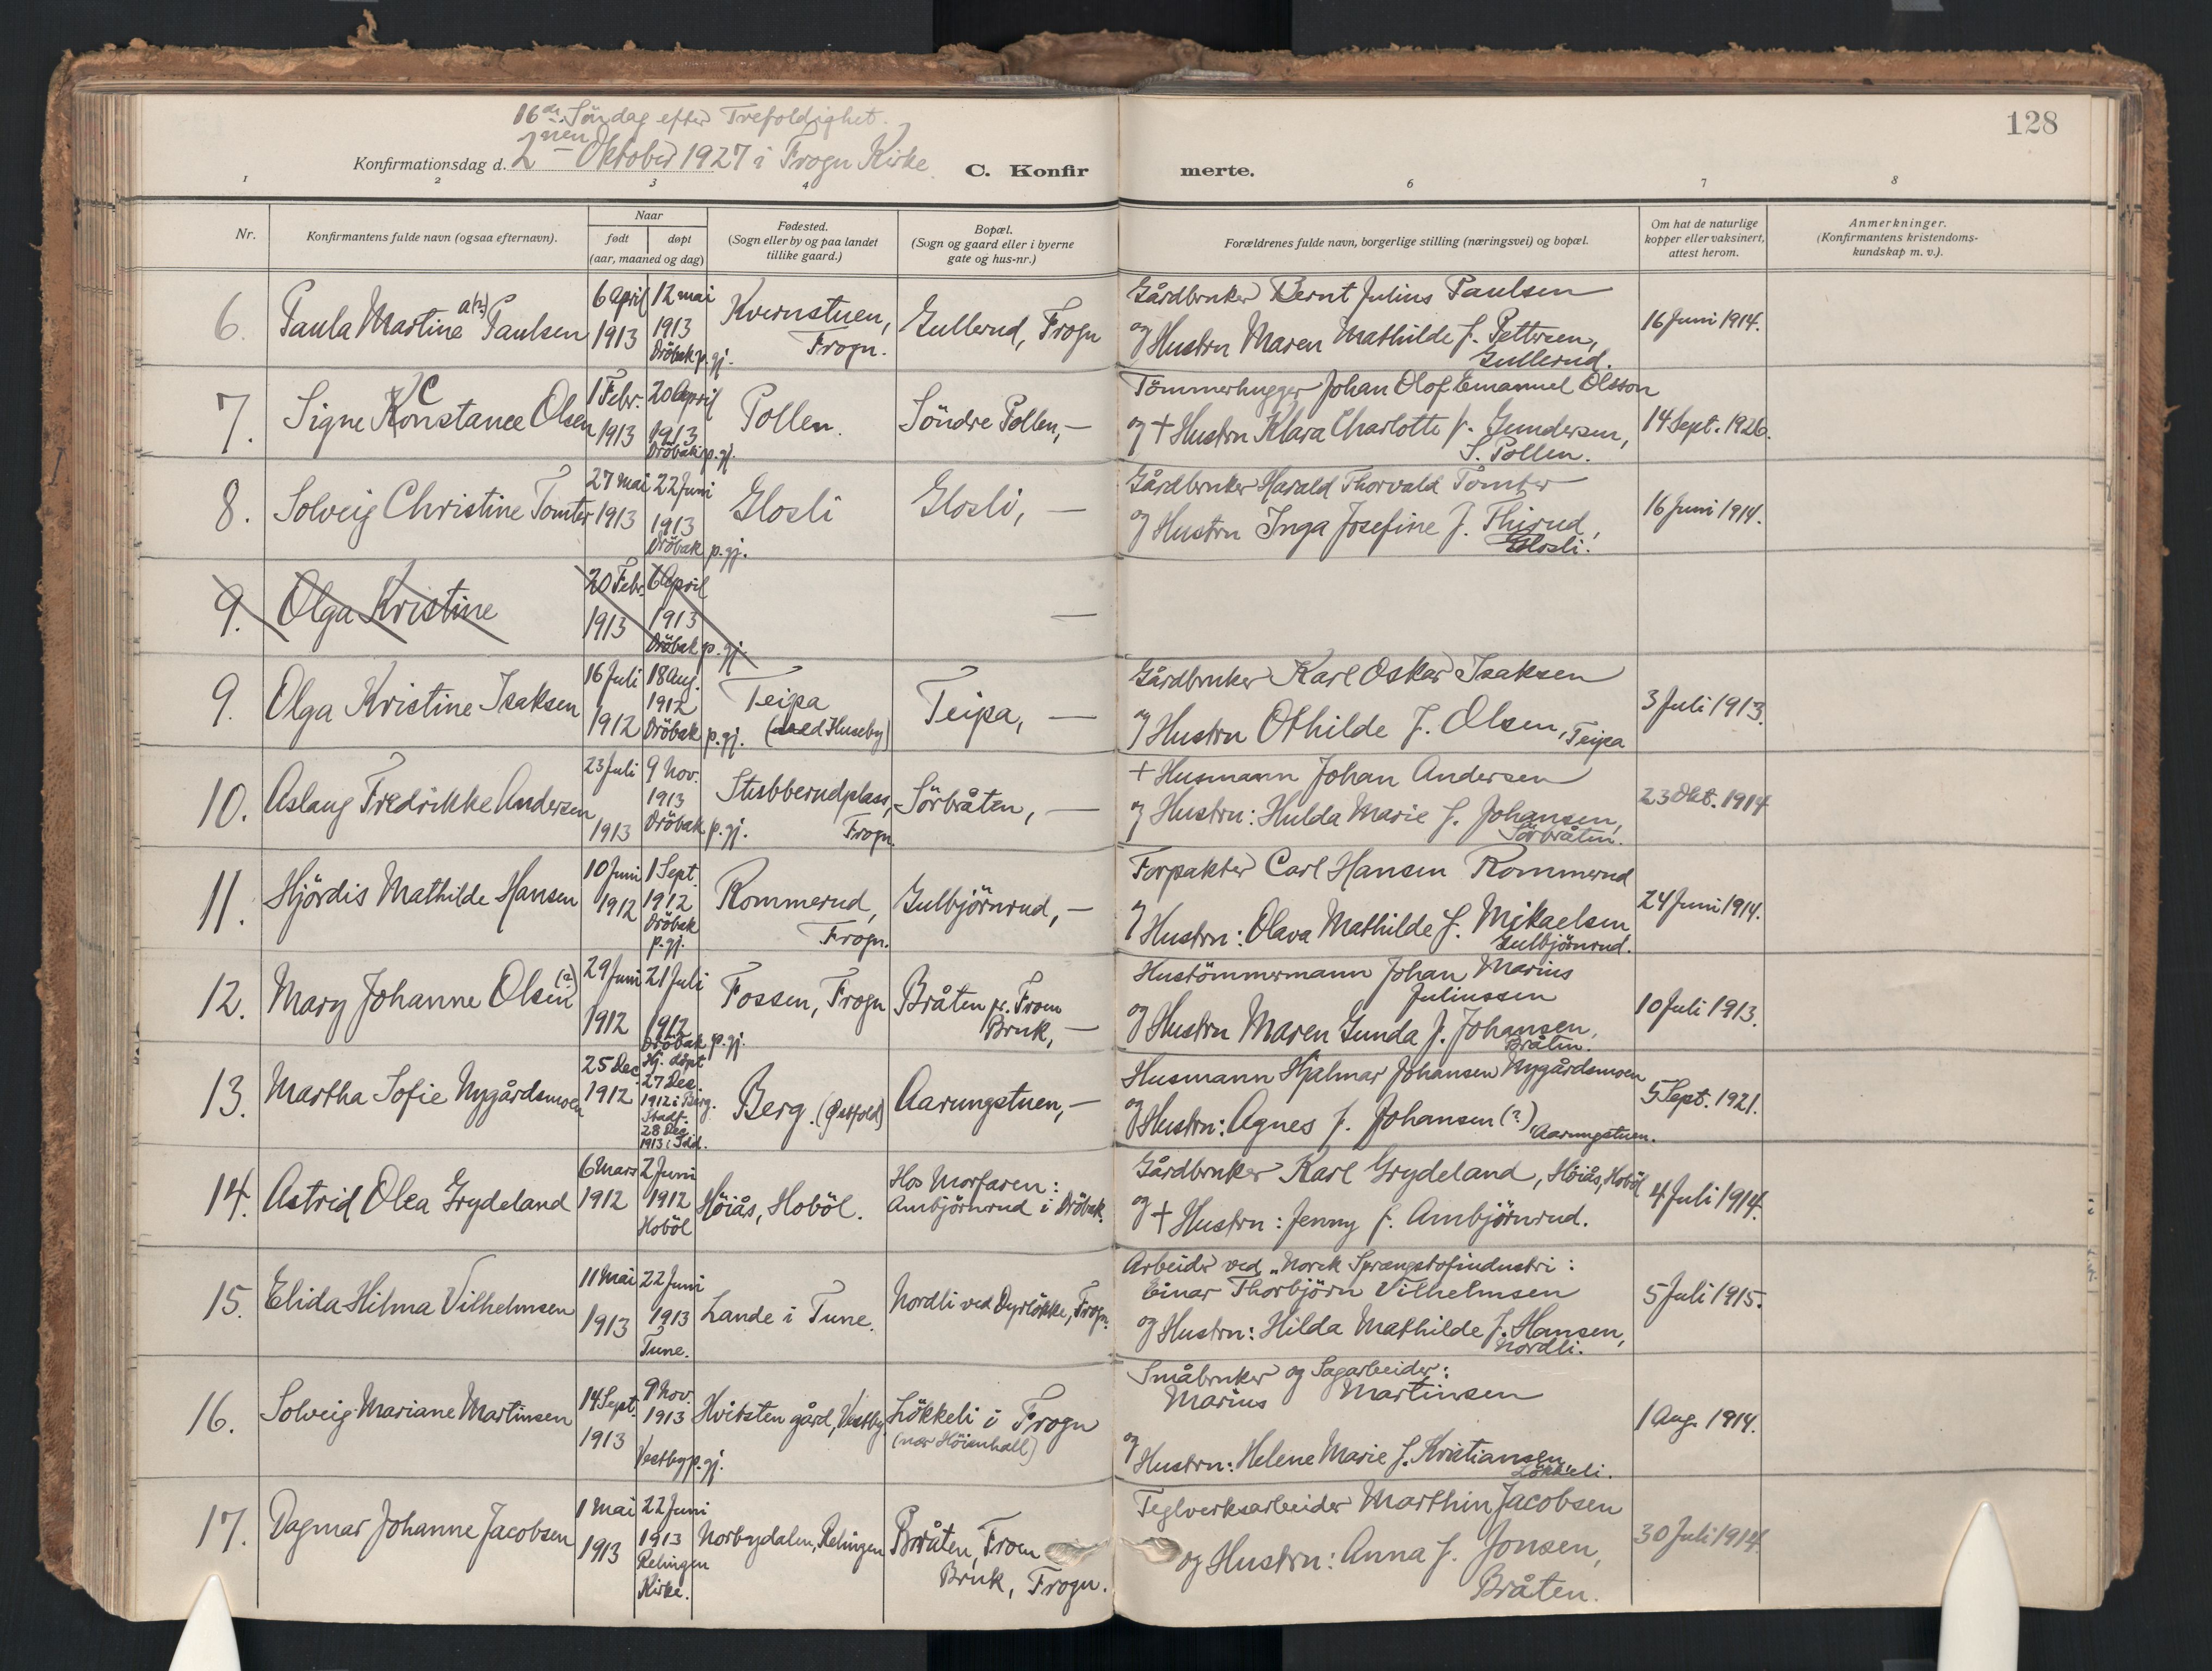 128
16de Söndag efter Trefoldighet.
Konfirmationsdag d. 2nen Oktober 1927 i Frogn Kirke.
C. Konfirmerte.
1 2 3 4 6 7 8
Nr.
Konfirmantens fulde navn (ogsaa efternavn).
Naar
født
døpt
(aar, maaned og dag)
Fødested.
(Sogn eller by og paa landet
tillike gaard.)
Bopæl.
(Sogn og gaard eller i byerne
gate og hus-nr.)
Forældrenes fulde navn, borgerlige stilling (næringsvei) og bopæl.
Om hat de naturlige
kopper eller vaksinert,
attest herom.
Anmerkninger.
(Konfirmantens kristendoms-
kundskap m. v.).
6. Paula Martine a(?) Paulsen
6 April
1913
12 mai
1913
Dröbak p. gj.
Kvernstuen,
Frogn.
Gullerud, Frogn
Gårdbruker Bernt Julius Paulsen
og Hustru Maren Mathilde f. Pettersen,
Gullerud.
16 Juni 1914.
7. Signe Constance Olsen
1 Febr.
1913
20 April
1913
Dröbak p. gj.
Pollen.
Söndre Pollen, —
Tömmerhugger Johan Olof Emanuel Olsson
og + Hustru Klara Charlotte f. Gundersen,
S. Pollen.
14 Sept. 1926.
8. Solveig Christine Tomter
27 mai
1913
22 Juni
1913
Dröbak p. gj.
Glosli
Glosli, —
Gårdbruker Harald Thorvald Tomter
og Hustru Inga Josefine f. Thirud,
Glosli.
16 Juni 1914.
9. Olga Kristine
20 Febr.
1913
6 April
1913
Dröbak p. gj.
—
9. Olga Kristine Isaksen
16 Juli
1912
18 Aug.
1912
Dröbak p. gj.
Teipa
(ved Huseby)
Teipa, —
Gårdbruker Karl Oskar Isaksen
og Hustru Othilde f. Olsen, Teipa
3 Juli 1913.
10. Aslaug Fredrikke Andersen
23 Juli
1913
9 Nov.
1913
Dröbak p. gj.
Stubberudplass,
Frogn.
Sörbråten, —
+ Husmann Johan Andersen
og Hustru: Hulda Marie f. Johansen,
Sörbråten.
23 Okt. 1914
11. Hjördis Mathilde Hansen
10 Juni
1912
1 Sept.
1912
Dröbak
p. gj.
Rommerud,
Frogn.
Gulbjörnrud, —
Forpakter Carl Hansen Rommerud
og Hustru: Olava Mathilde f. Mikaelsen
Gulbjörnrud.
24 Juni 1914.
12. Mary Johanne Olsen (?)
29 Juni
1912
21 Juli
1912
Dröbak p. gj.
Fossen, Frogn
Bråten pr. Froen
Bruk, —
Hustömmermann Johan Marius
Juliussen
og Hustru Maren Gunda f. Johansen,
Bråten.
10 Juli 1913.
13. Martha Sofie Nygårdsmoen
25 Dec.
1912
Hj. döpt
27 Des.
1912 i Berg.
Stadf.
28 Des.
1913 i Idd.
Berg. (Østfold)
Aarungstuen, —
Husmann Hjalmar Johansen Nygårdsmoen
og Hustru: Agnes f. Johansen (?), Aarungstuen.
5 Sept. 1921.
14. Astrid Olea Grydeland
6 Mars
1912
2 Juni
1912
Hoböl
Höiås, Hoböl.
Hos Morfaren:
Ambjörnrud i Dröbak.
Gårdbruker Karl Grydeland, Höiås, Hoböl
og + Hustru: Jenny f. Ambjörnrud.
4 Juli 1914.
15. Elida Hilma Vilhelmsen
11 Mai
1913
22 Juni
1913
Tune.
Lande i Tune.
Nordli ved Dyrlökke, Frogn.
Arbeider ved "Norsk Sprængstofindustri:
Einar Thorbjörn Vilhelmsen
og Hustru: Hilda Mathilde f. Hansen,
Nordli.
5 Juli 1915.
16. Solveig Mariane Martinsen
14 Sept.
1913
9 Nov.
1913
Vestby p. gj.
Hvitsten gård, Vestby.
Lökkeli i Frogn
(nær Höienhall)
Småbruker og Sagarbeider:
Marius Martinsen
og
Hustru: Helene Marie f. Kristiansen,
Lökkeli.
1 Aug. 1914.
17. Dagmar Johanne Jacobsen
1 Mai
1913
22 Juni
1913
Relingen
Kirke.
Norbydalen, Relingen
Bråten, Froen
Bruk, Frogn.
Teglverksarbeider Marthin Jacobsen
og Hustru: Anna f. Jonsen,
Bråten.
30 Juli 1914.